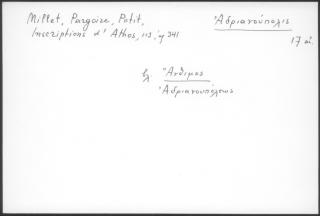 Millet, Pargoire, Petit,
Inscriptions d'Athos, 113, 341
Ἀδριανούπολις
17 αἰ.
βλ. Ἄνθιμος
Ἀδριανουπόλεως